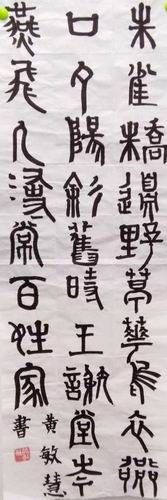 朱雀橋邊野草華烏衣巷
口夕陽斜舊時王謝堂前
燕飛入尋常百姓家
黄敏慧
書